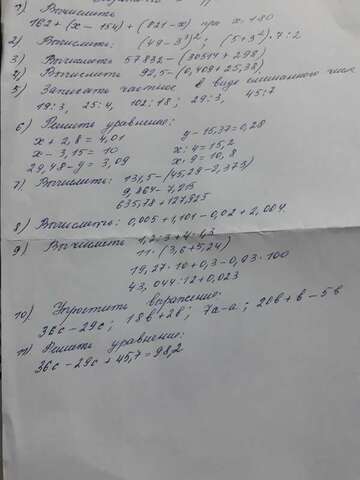 1) Вычислить
162 + (x - 154) + (821 - x) при x = 180
2) Вычислить: (49 - 3³)² ; (5 + 3⁴) · 7 : 2
3) Вычислить 57832 - (30517 + 298)
4) Вычислить 92,5 - (0,408 + 25,38)
5) Записать частное в виде смешанного числа
19 : 3, 25 : 4, 102 : 18 ; 29 : 3, 45 : 7
6) Решить уравнение:
x + 2,8 = 4,01 y - 15,37 = 0,28
x - 3,15 = 10 x : 4 = 15,2
29,48 - y = 3,09 x : 9 = 10,8
7) Вычислить: 131,5 - (45,29 - 2,373)
9,864 - 7,215
635,78 + 127,925
8) Вычислить: 0,005 + 1,101 - 0,02 + 2,004
9) Вычислить 1,2 : 3 + 4 : 1,3
11 · (3,6 + 5,24)
19,27 · 10 + 0,3 - 0,03 · 100
43,044 : 12 + 0,023
10) Упростить выражение:
36c - 29c ; 18в + 2в ; 7a - a ; 20в + в - 5в
11) Решить уравнение:
36c - 29c + 45,7 = 98,2